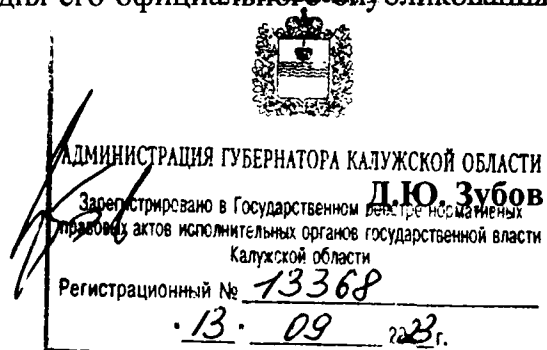 дня его официального опубликования
АДМИНИСТРАЦИЯ ГУБЕРНАТОРА КАЛУЖСКОЙ ОБЛАСТИ
Д.Ю. Зубов
Зарегистрировано в Государственном реестре нормативных
правовых актов исполнительных органов государственной власти
Калужской области
Регистрационный № 13368
13 09 2023г.